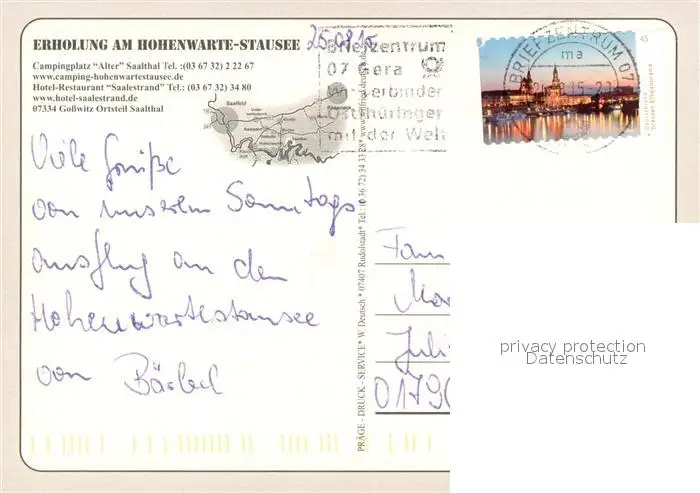 ERHOLUNG AM HOHENWARTE-STAUSEE
Campingplatz "Alter" Saalthal Tel.: (03 67 32) 2 22 67
www.camping-hohenwartestausee.de
Hotel-Restaurant "Saalestrand" Tel.: (03 67 32) 34 80
www.hotel-saalestrand.de
07334 Goßwitz Ortsteil Saalthal
25.08.15
Briefzentrum
07 Gera
Wir verbinden
Ostthüringen
mit der Welt
BRIEFZENTRUM 07
ma
45
Saalfeld
Viele Grüße
von unserem Sonntags
ausflug an den
Hohenwartestausee
von Bärbel
PRÄGE - DRUCK - SERVICE* W. Deutsch * 07407 Rudolstadt* Tel.: (0 36 72) 34 33 28*
Fam
Mar
Juli
0179
privacy protection
Datenschutz